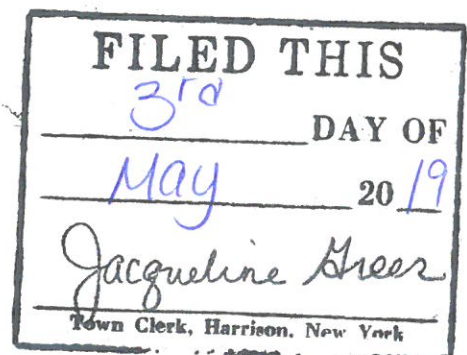 FILED THIS
3rd DAY OF
May 20 19
Jacqueline Greer
Town Clerk, Harrison, New York